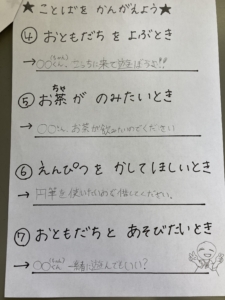 ★ ことばを かんがえよう★
④ おともだち を よぶとき
(ちゃん)
→ ○○くん、こっちに来て遊ぼうよ!!
ちゃ
⑤ お茶 が のみたいとき
→ お茶が飲みたいのでください
⑥ えんぴつ を かしてほしいとき
→ 円筆を使いたいので貸してください。
⑦ おともだちと あそびたいとき
(ちゃん)
→ ○○くん 一緒に遊んでもいい?